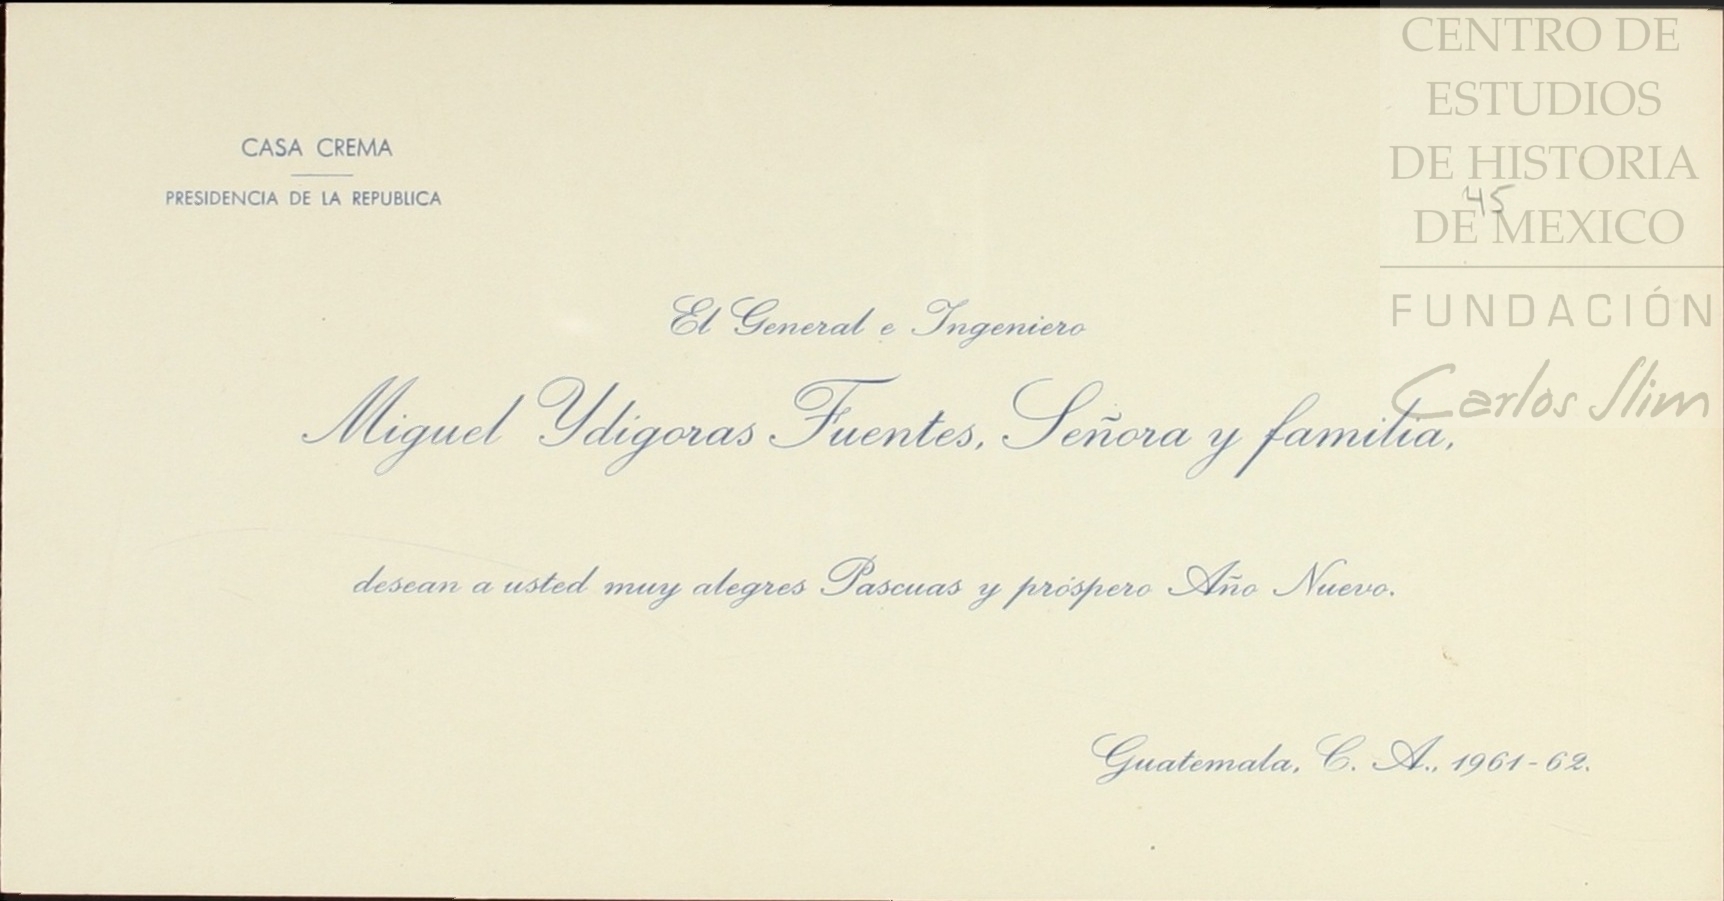 CASA CREMA
PRESIDENCIA DE LA REPUBLICA
CENTRO DE
ESTUDIOS
DE HISTORIA
45
DE MEXICO
FUNDACIÓN
Carlos Slim
El General e Ingeniero
Miguel Ydígoras Fuentes, Señora y familia,
desean a usted muy alegres Pascuas y próspero Año Nuevo.
Guatemala, C. A., 1961-62.